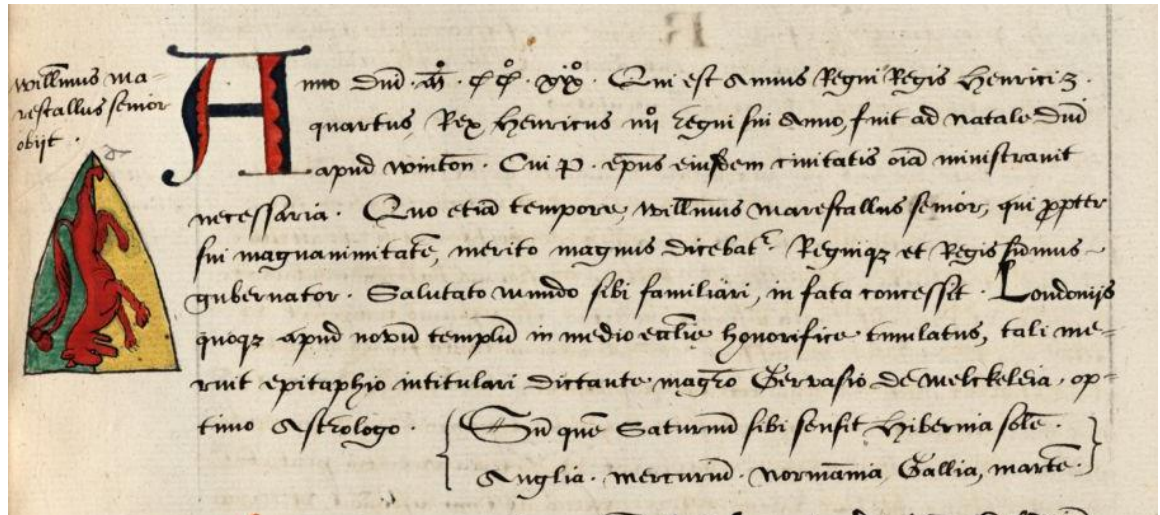 willm̄us ma-
rescallus senior
obijt .
Anno Dn̄i . M̊ . CC̊ . xix̊ . Qui est Annus Regni Regis Henrici 3 .
quartus, Rex Henricus iiij̊ regni sui Anno, fuit ad Natale Dn̄i
apud winton̄ . Cui P . ep̄us eiusdem ciuitatis oīa ministrauit
necessaria . Quo etiā tempore, willm̄us marescallus senior, qui propter
sui magnanimitatē, merito magnus dicebatr . Regniqz et Regis fidmus
gubernator . Salutato mundo sibi familiari, in fata concessit . Londonijs
quoqz apud nouū templū in medio eccl̄ie honorifice tumulatus, tali me-
ruit epitaphio intitulari dictante magrō Geruasio de Melckeleia, op-
timo Astrologo .
Sū quē Saturnū sibi sensit Hibernia solē .
Anglia . mercuriū . Normānia, Gallia, martē .